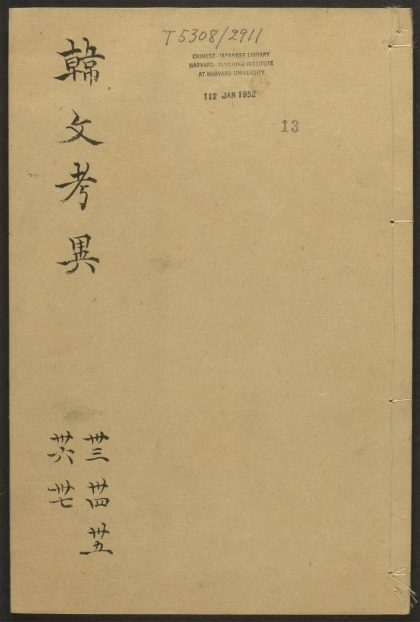 T 5308/2911
CHINESE-JAPANESE LIBRARY
HARVARD-YENCHING INSTITUTE
AT HARVARD UNIVERSITY
112 JAN 1952
13
韓文考異
卅三 卅四 卅五
卅六 卅七